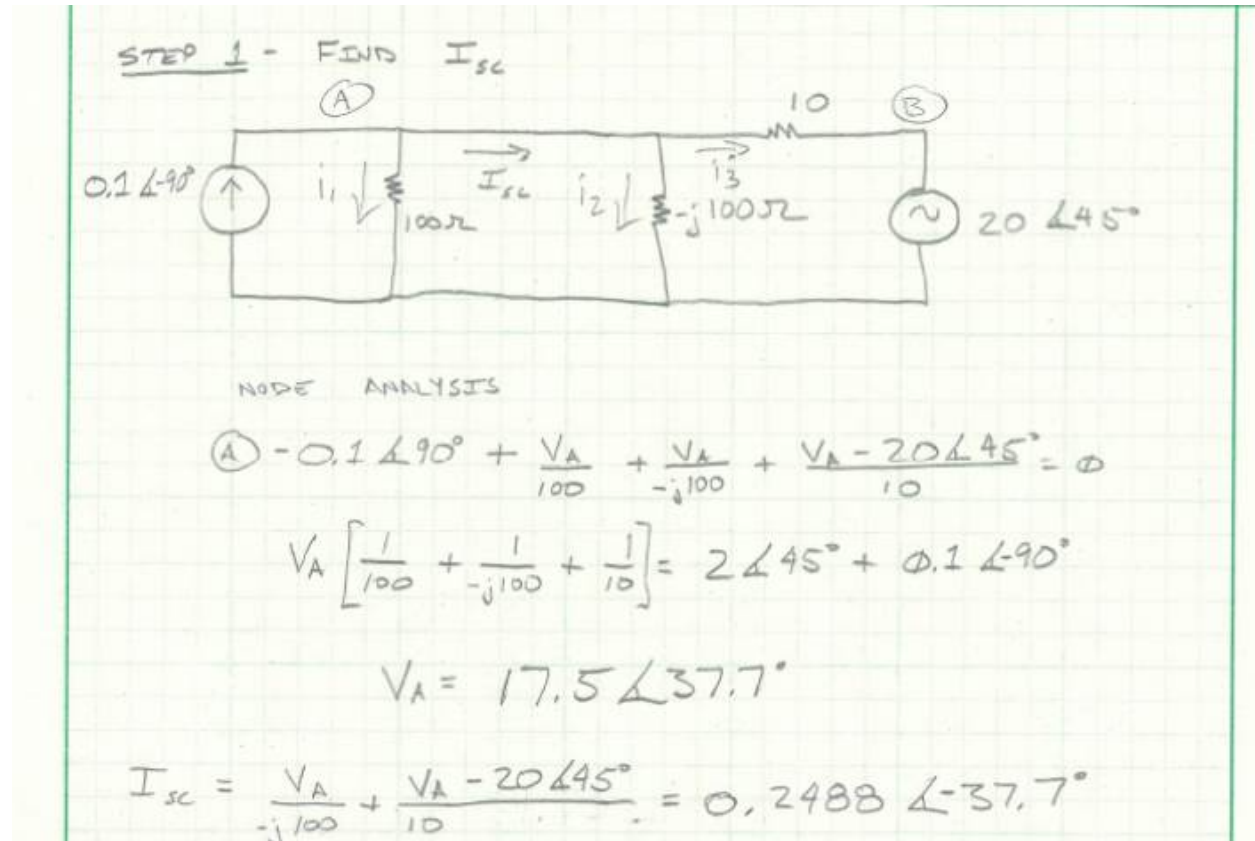 STEP 1 - FIND Isc
A
10
B
0.1 ∠-90°
i1
100Ω
Isc
i2
-j100Ω
i3
20 ∠45°
NODE ANALYSIS
A -0.1 ∠90° + VA/100 + VA/-j100 + (VA - 20∠45°)/10 = 0
VA [1/100 + 1/-j100 + 1/10] = 2∠45° + 0.1 ∠-90°
VA = 17.5 ∠37.7°
Isc = VA/-j100 + (VA - 20∠45°)/10 = 0.2488 ∠-37.7°